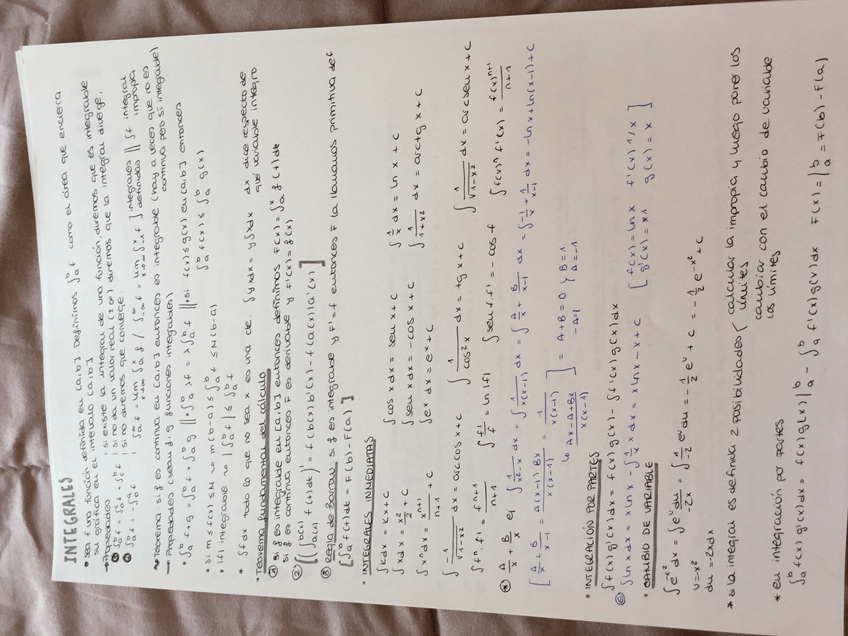 INTEGRALES
• sea f un función definida en [a,b] Definimos ∫ₐᵇ f como el área que encierra
su gráfica en el intervalo [a,b]
→ Propiedades
ⓐ ∫ₐᵇ f = ∫ₐᶜ f + ∫꜀ᵇ f
ⓑ ∫ₐᵇ f = -∫ᵇₐ f
: si existe la integral de una función, diremos que es integrable
: si no da un valor real (±∞) diremos que la integral diverge,
: si no diremos que converge.
integrales definidas || ∫f integral impropia
→ Teorema si f es continua en [a,b] entonces es integrable (hay a veces que no es
continua pero si integrable)
→ Propiedades (sean f, g funciones integrables)
• ∫ₐᵇ f+g = ∫ₐᵇ f + ∫ₐᵇ g || • ∫ₐᵇ λf = λ ∫ₐᵇ f || • si f(x) ≤ g(x) en [a,b] entonces
∫ₐᵇ f(x) ≤ ∫ₐᵇ g(x)
• si m ≤ f(x) ≤ M → m(b-a) ≤ ∫ₐᵇ f ≤ M(b-a)
• |f| integrable → |∫ₐᵇ f| ≤ ∫ₐᵇ f
* ∫f dx todo lo que no sea x es una cte. ∫yxdx = y∫xdx dx dice respecto de
que variable integro
• Teorema fundamental del cálculo
① si f es integrable en [a,b] entonces definimos F(x) = ∫ₐˣ f(t)dt
si f es continua entonces F es derivable y F'(x) = f(x)
② [(∫_{a(x)}^{b(x)} f(t)dt)' = f(b(x))b'(x) - f(a(x))a'(x)]
③ Regla de Barrow si f es integrable y F' = f entonces F la llamamos primitiva de f
[∫ₐᵇ f(t)dt = F(b) - F(a)]
• INTEGRALES INMEDIATAS
∫kdx = kx + c ∫cos x dx = sen x + c ∫1/x dx = ln x + c
∫xdx = x²/2 + c ∫sen x dx = -cos x + c ∫1/(1+x²) dx = arctg x + c
∫xⁿdx = xⁿ⁺¹/(n+1) + c ∫eˣ dx = eˣ + c
∫-1/√(1-x²) dx = arccos x + c ∫1/cos²x dx = tg x + c ∫1/√(1-x²) dx = arcsen x + c
∫fⁿ·f' = fⁿ⁺¹/(n+1) ∫f'/f = ln|f| ∫sen f·f' = -cos f ∫f(x)ⁿ f'(x) = f(x)ⁿ⁺¹/(n+1)
* A/x + B/x ej ∫1/(x²-x) dx = ∫1/(x(x-1)) dx = ∫A/x + B/(x-1) dx = ∫-1/x + 1/(x-1) dx = -ln x + ln(x-1) + c
[A/x + B/(x-1) = (A(x-1) + Bx)/(x(x-1)) = 1/(x(x-1))
↳ (Ax-A+Bx)/(x(x-1))] = A+B=0 } B=1
-A=1 A=-1
• INTEGRACIÓN POR PARTES
∫f(x)g'(x)dx = f(x)g(x) - ∫f'(x)g(x)dx
∫ln x dx = x ln x - ∫1/x x dx = x ln x - x + c [f(x) = ln x f'(x) 1/x
g'(x) = 1 g(x) = x]
• CAMBIO DE VARIABLE
∫e^{-x²} dx = ∫eᵘ du/-2x = ∫1/-2 eᵘ du = -1/2 eᵘ + c = -1/2 e^{-x²} + c
u = -x²
du = -2xdx
* si la integral es definida 2 posibilidades { calcular la impropia y luego pone los
límites
cambiar con el cambio de variable
los límites
* en integración por partes
∫ₐᵇ f(x)g'(x)dx = f(x)g(x)|ₐᵇ - ∫ₐᵇ f'(x)g(x)dx F(x) = |ₐᵇ = F(b) - F(a)